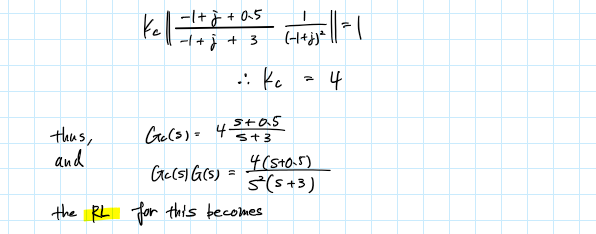 Kc || (-1+j+0.5)/(-1+j+3) 1/(-1+j)² || = 1
∴ Kc = 4
thus, Gc(s) = 4 (s+0.5)/(s+3)
and
Gc(s)G(s) = 4(s+0.5)/(s²(s+3))
the RL for this becomes